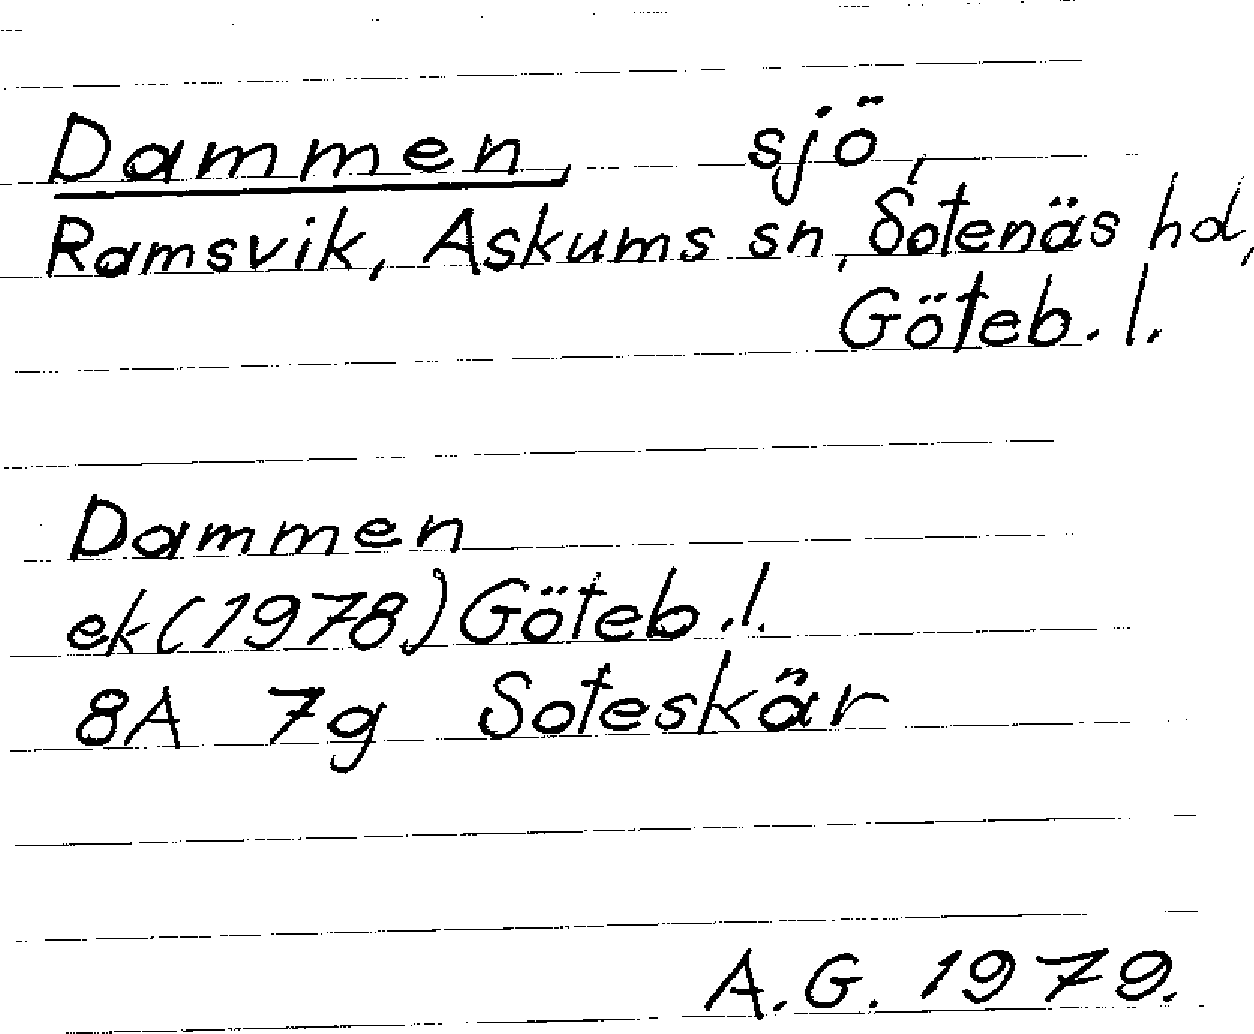 Dammen, sjö,
Ramsvik, Askums sn, Sotenäs hd,
Göteb. l.
Dammen
ek (1978) Göteb. l.
8A 7g Soteskär
A.G. 1979.